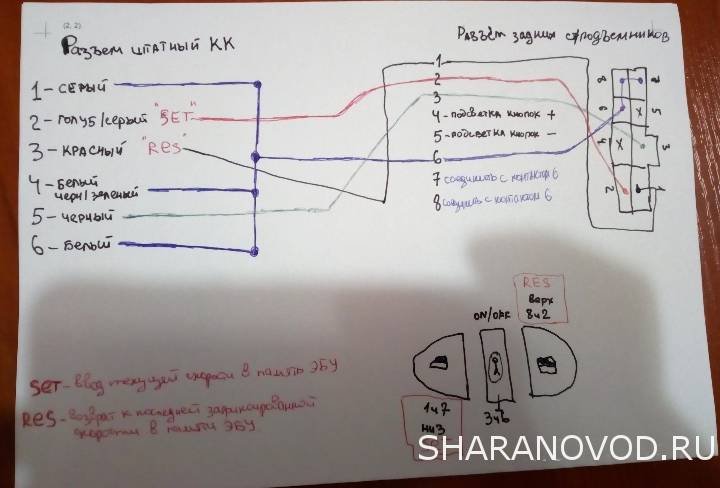 (2,2)
Разъем штатный КК
Разъём задниц с/подъемников
1 - серый
2 - голуб/серый "SET"
3 - красный "RES"
4 - белый
черн/зеленый
5 - черный
6 - белый
1
2
3
4 - подсветка кнопок +
5 - подсветка кнопок -
6
7 соединить с контактом 6
8 соединить с контактом 6
8 7
6 x 5
4 x 3
2 1
RES
верх
8 и 2
ON/OFF
1 и 7
низ
3 и 6
SET - ввод текущей скорости в память ЭБУ
RES - возврат к последней зафиксированной
скорости в памяти ЭБУ
SHARANOVOD.RU